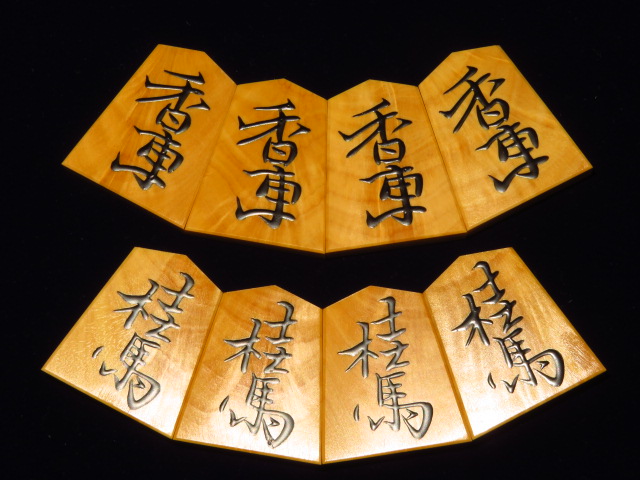 香車
香車
香車
香車
桂馬
桂馬
桂馬
桂馬